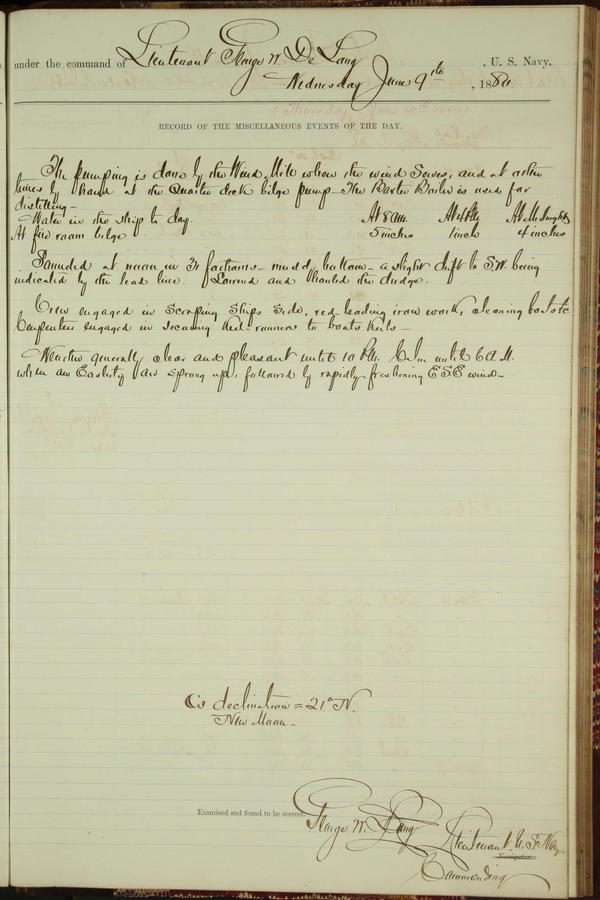 under the command of Lieutenant George W. De Long , U. S. Navy,
Wednesday June 9th , 1880.
(Thursday June 10th 1880)
RECORD OF THE MISCELLANEOUS EVENTS OF THE DAY.
The pumping is done by the Wind Mill when the wind serves, and at other
times by hand at the Quarter deck bilge pump – The Baxter Boiler is used for
distilling –
Water in the ship to day. At 8 AM. At 4 PM At Midnight
At fire room bilge 5 inches 1 inch 4 inches
Sounded at noon in 31 fathoms – muddy bottom – a slight drift to S.W. being
indicated by the lead line. Lowered and hauled the dredge.
Crew engaged in scraping ships side, red leading iron work, cleaning boats etc
Carpenter engaged in securing keel runners to boats keels –
Weather generally clear and pleasant until 10 P.M. Calm until 6 A.M.
when an Easterly air sprung up, followed by rapidly freshening ESE wind –
☾'s declination = 21° N.
New Moon –
Examined and found to be correct.
George W. De Long Lieutenant U.S. Navy
Navigator.
Commanding